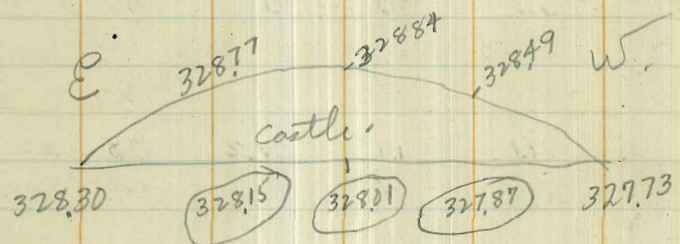 E 328.77 328.84 328.49 W.
Castle.
328.30 328.15 328.01 327.87 327.73